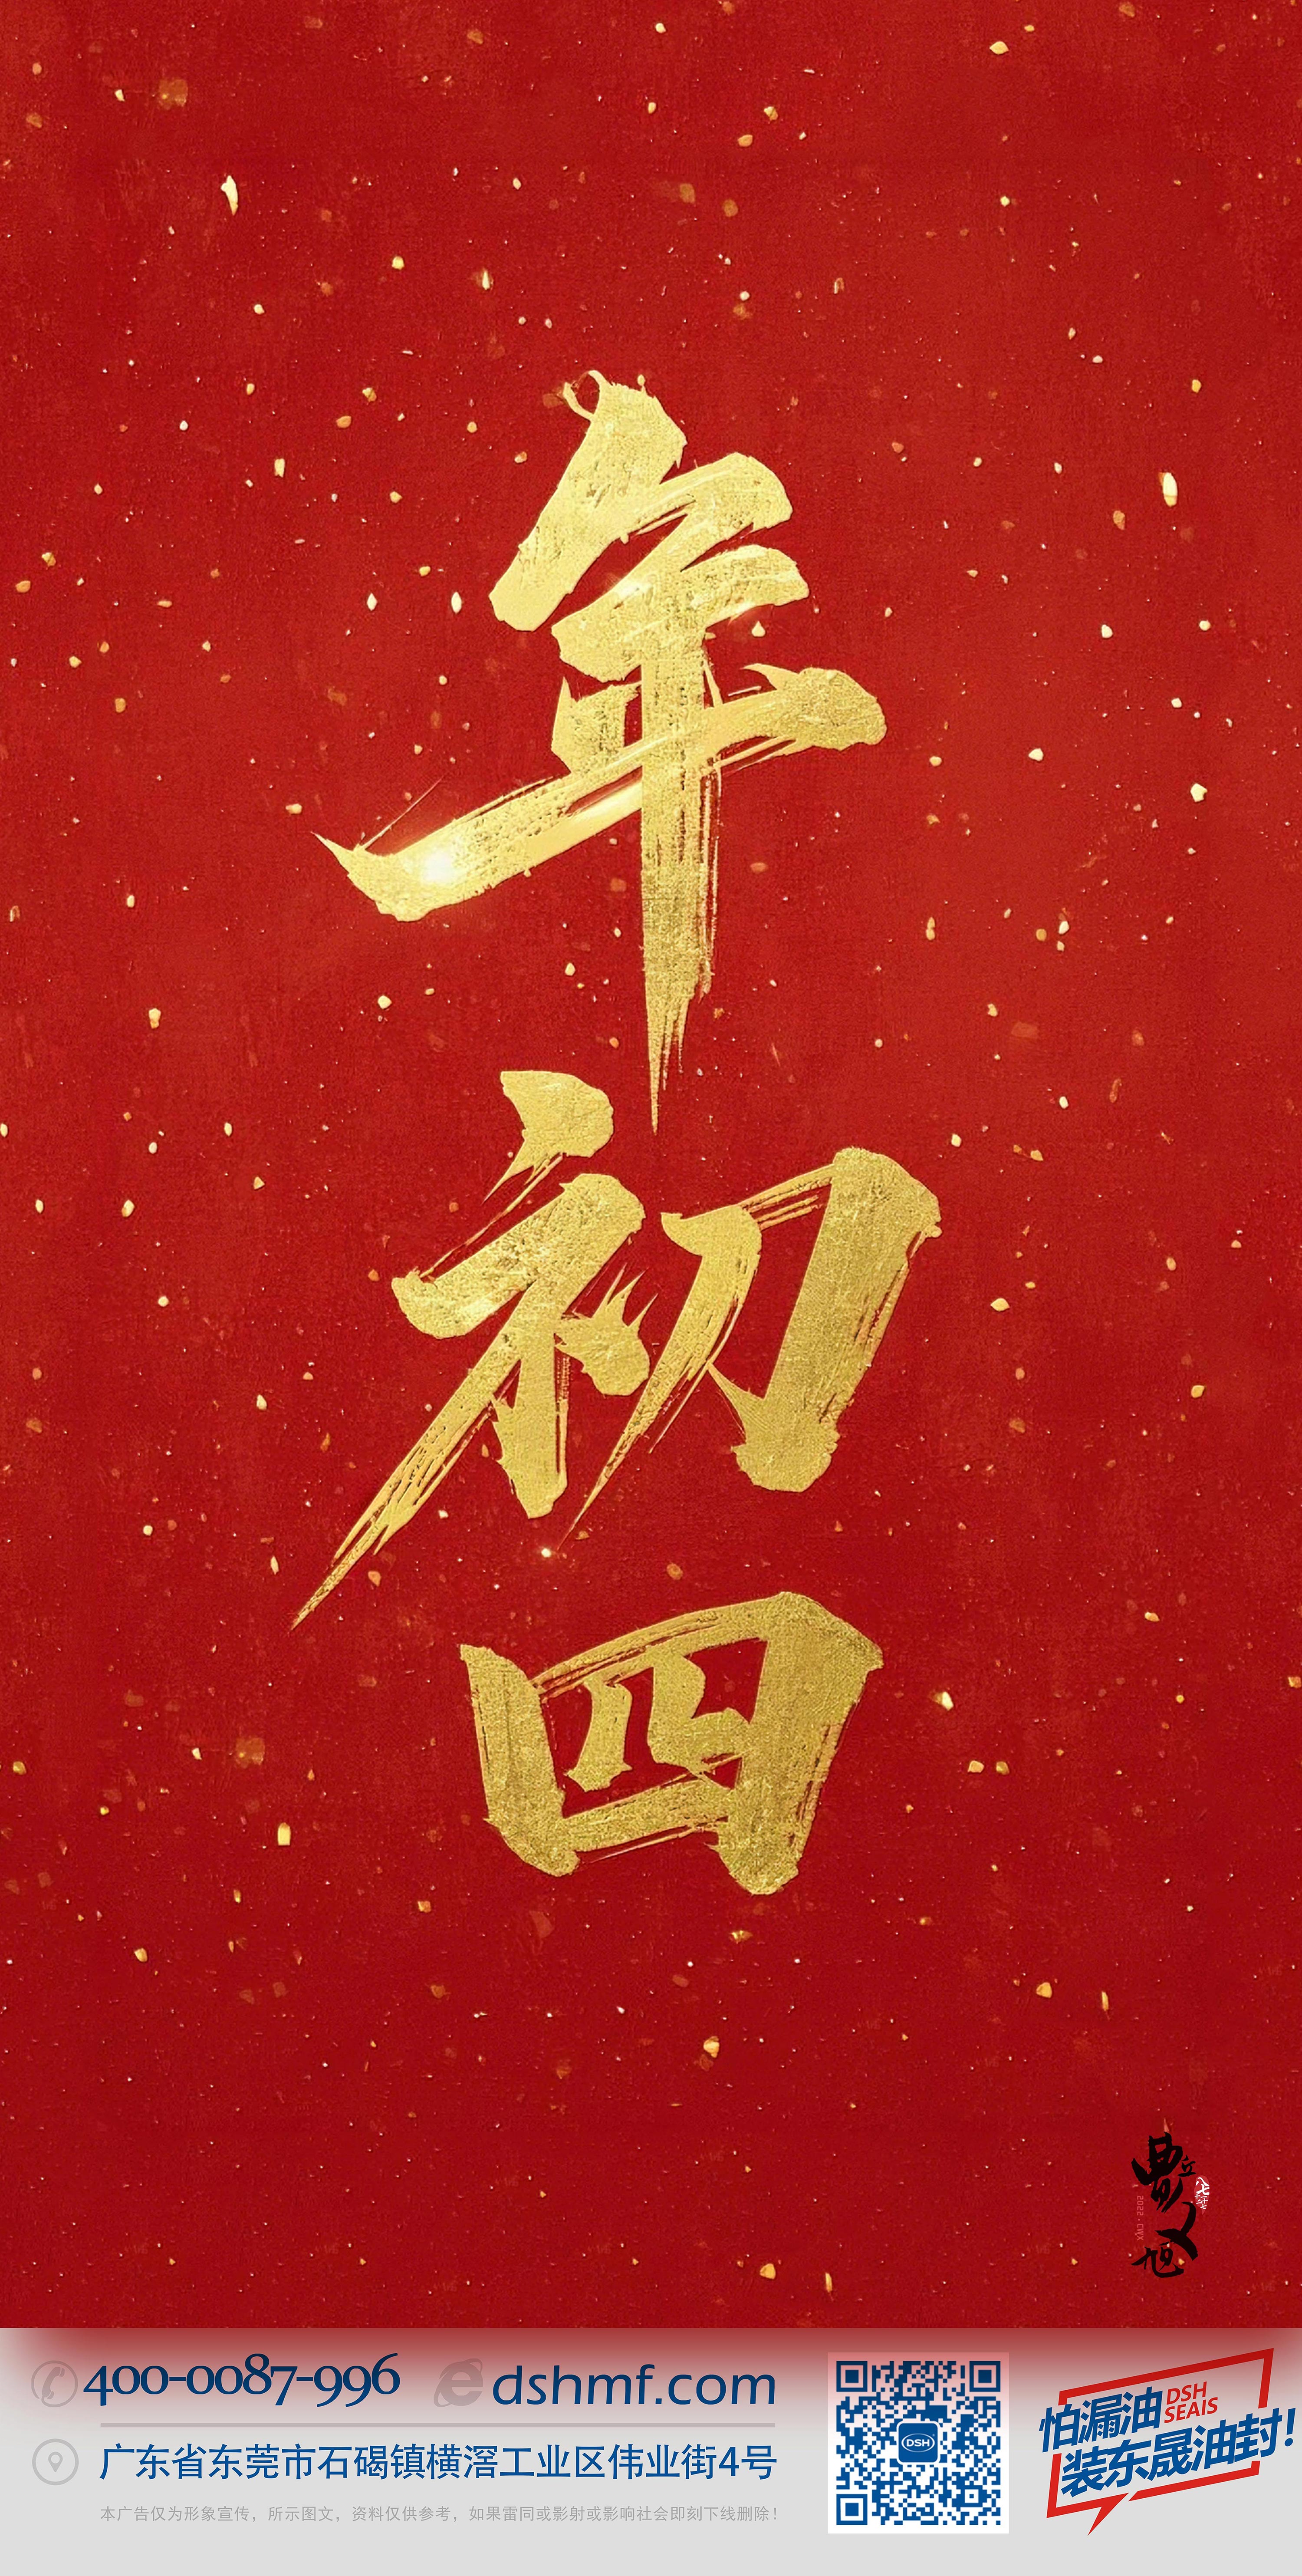 年初四
400-0087-996
dshmf.com
广东省东莞市石碣镇横滘工业区伟业街4号
本广告仅为形象宣传，所示图文，资料仅供参考，如果雷同或影射或影响社会即刻下线删除！
DSH
怕漏油DSH SEAIS
装东晟油封！